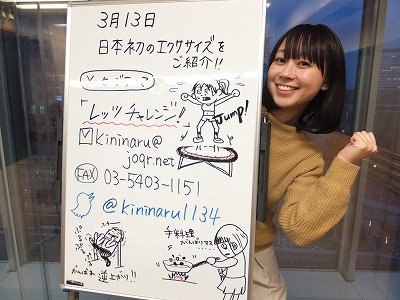 3月13日
日本初のエクササイズを
ご紹介!!
メッセージテーマ
「レッツチャレンジ!」
Jump!
kininaru@
joqr.net
FAX 03-5403-1151
@kininaru1134
手料理
がんばりマス
ぷるぷる
がんばれ 逆上がり!!